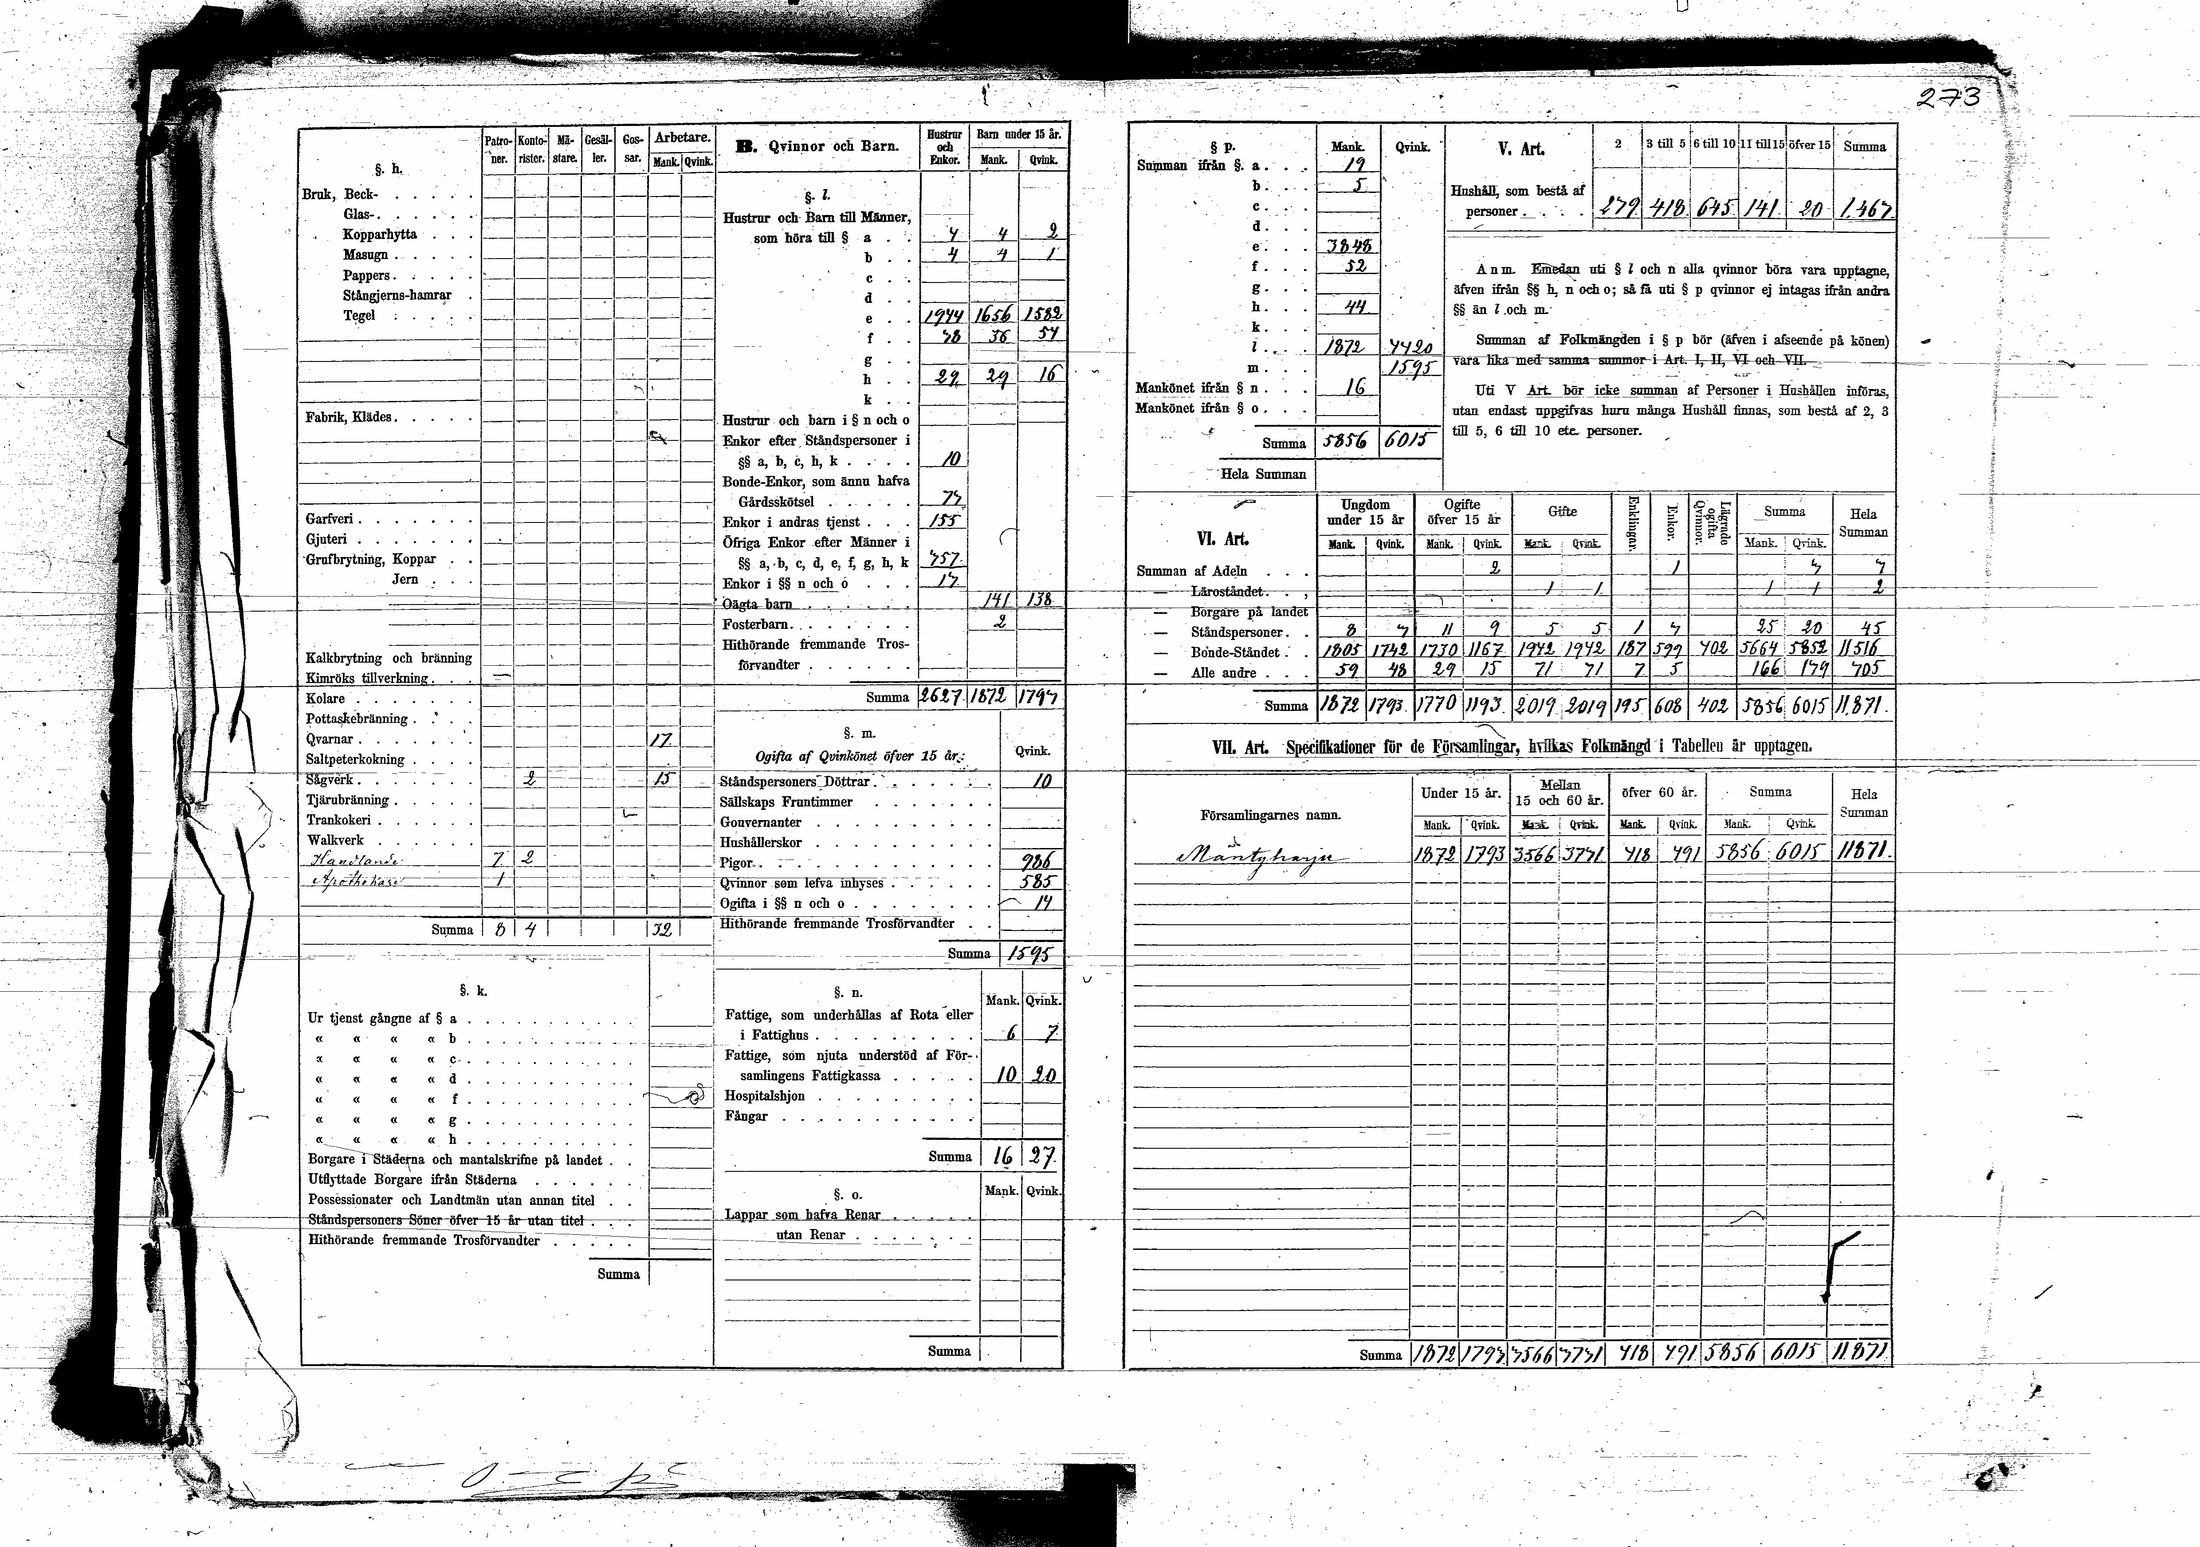 273
§. h. Patroner. Kontorister. Mästare. Gesäller. Gossar. Arbetare. Mank. Qvink.
Bruk, Beck- . . . . .
Glas- . . . . .
Kopparhytta . . .
Masugn . . . . .
Pappers . . . . .
Stångjerns-hamrar .
Tegel . . . . .
Fabrik, Klädes . . . .
Garfveri . . . . . . .
Gjuteri . . . . . . .
Grufbrytning, Koppar . .
Jern . . .
Kalkbrytning och bränning
Kimröks tillverkning . . .
Kolare . . . . . . .
Pottaskebränning . . . .
Qvarnar . . . . . . . 17
Saltpeterkokning . . . .
Sågverk . . . . . . . 2 15
Tjärubränning . . . . .
Trankokeri . . . . . .
Walkverk . . . . . . .
Handlande 7 2
Apothekare 1
Summa 8 4 32
§. k.
Ur tjenst gångne af § a . . . . . . . . . .
« « « « b . . . . . . . . . .
« « « « c . . . . . . . . . .
« « « « d . . . . . . . . . .
« « « « f . . . . . . . . . .
« « « « g . . . . . . . . . .
« « « « h . . . . . . . . . .
Borgare i Städerna och mantalskrifne på landet . .
Utflyttade Borgare ifrån Städerna . . . . . .
Possessionater och Landtmän utan annan titel . .
Ståndspersoners Söner öfver 15 år utan titel . . .
Hithörande fremmande Trosförvandter . . . . .
Summa
B. Qvinnor och Barn. Hustrur och Enkor. Barn under 15 år. Mank. Qvink.
§. l.
Hustrur och Barn till Männer,
som höra till § a . . 4 4 2
b . . 4 4 1
c . .
d . .
e . . 1944 1656 1582
f . . 38 36 54
g . .
h . . 29 29 16
k . .
Hustrur och barn i § n och o
Enkor efter Ståndspersoner i
§§ a, b, c, h, k . . . . 10
Bonde-Enkor, som ännu hafva
Gårdsskötsel . . . . . 74
Enkor i andras tjenst . . . 155
Öfriga Enkor efter Männer i
§§ a, b, c, d, e, f, g, h, k 357
Enkor i §§ n och o . . . 17
Oägta barn . . . . . . . 141 138
Fosterbarn . . . . . . . 2
Hithörande fremmande Tros-
förvandter . . . . . .
Summa 2627 1872 1793
§. m.
Ogifta af Qvinkönet öfver 15 år: Qvink.
Ståndspersoners Döttrar . . . . . . . 10
Sällskaps Fruntimmer . . . . . . .
Gouvernanter . . . . . . . . . .
Hushållerskor . . . . . . . . . .
Pigor . . . . . . . . . . . . 986
Qvinnor som lefva inhyses . . . . . . 585
Ogifta i §§ n och o . . . . . . . . 14
Hithörande fremmande Trosförvandter . .
Summa 1595
§. n. Mank. Qvink.
Fattige, som underhållas af Rota eller
i Fattighus . . . . . . . . . 6 7
Fattige, som njuta understöd af För-
samlingens Fattigkassa . . . . . 10 20
Hospitalshjon . . . . . . . . .
Fångar . . . . . . . . . . .
Summa 16 27
§. o. Mank. Qvink.
Lappar som hafva Renar . . . . .
utan Renar . . . . . .
Summa
§ p. Mank. Qvink.
Summan ifrån §. a . . . 19
b . . . 5
c . . .
d . . .
e . . . 3848
f . . . 52
g . . .
h . . . 44
k . . .
l . . . 1872 4420
m . . . 1595
Mankönet ifrån § n . . . 16
Mankönet ifrån § o . . .
Summa 5856 6015
Hela Summan
V. Art. 2 3 till 5 6 till 10 11 till 15 öfver 15 Summa
Hushåll, som bestå af
personer . . . . 279 418 645 141 20 1,467
Anm. Emedan uti § l och n alla qvinnor böra vara upptagne,
äfven ifrån §§ h, n och o; så få uti § p qvinnor ej intagas ifrån andra
§§ än l och m.
Summan af Folkmängden i § p bör (äfven i afseende på könen)
vara lika med samma summor i Art. I, II, VI och VII.
Uti V Art. bör icke summan af Personer i Hushållen införas,
utan endast uppgifvas huru många Hushåll finnas, som bestå af 2, 3
till 5, 6 till 10 etc. personer.
VI. Art. Ungdom under 15 år Ogifte öfver 15 år Gifte Enklingar. Enkor. Lägrade ogifta Qvinnor. Summa Hela Summan
Mank. Qvink. Mank. Qvink. Mank. Qvink. Mank. Qvink.
Summan af Adeln . . . 2 1 3 3
— Läroståndet . . , 1 1 1 1 2
— Borgare på landet
— Ståndspersoner . . 8 3 11 9 5 5 1 3 25 20 45
— Bonde-Ståndet . . 1805 1742 1730 1167 1942 1942 187 599 402 5664 5852 11516
— Alle andre . . . 59 48 29 15 71 71 7 5 166 139 305
Summa 1872 1793 1770 1193 2019 2019 195 608 402 5856 6015 11,871.
VII. Art. Specifikationer för de Församlingar, hvilkas Folkmängd i Tabellen är upptagen.
Församlingarnes namn. Under 15 år. Mellan 15 och 60 år. öfver 60 år. Summa Hela Summan
Mank. Qvink. Mank. Qvink. Mank. Qvink. Mank. Qvink.
Mäntyharju 1872 1793 3566 3731 418 491 5856 6015 11871.
Summa 1872 1793 3566 3731 418 491 5856 6015 11,871.